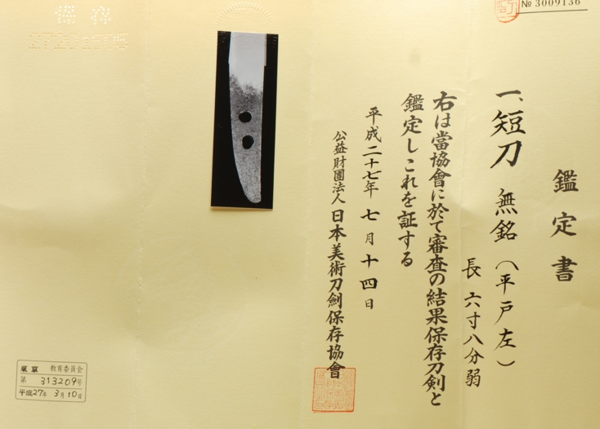 № 3009136
鑑定書
一、短刀 無銘(平戸左)
長 六寸八分弱
右は當協會に於て審査の結果保存刀剣と
鑑定しこれを証する
平成二十七年 七月 十四日
公益財團法人 日本美術刀劍保存協會
東京 教育委員会
第 313209号
平成27年 3月10日